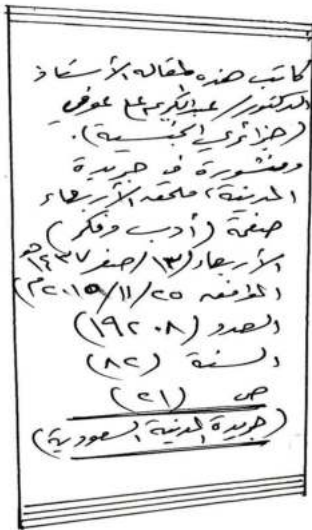 كاتب هذه المقالة الأستاذ
الدكتور/ عبدالكريم علي عوفي
(جزائري الجنسية).
ومنشورة في جريدة
المدينة، ملحق الأربعاء
صفحة (أدب وفكر)
الأربعاء (١٣/صفر/١٤٣٧هـ
الموافق ٢٥/١١/٢٠١٥م)
العدد (١٩٢٠٨)
السنة (٨٢)
ص (٢١)
(جريدة المدينة السعودية)